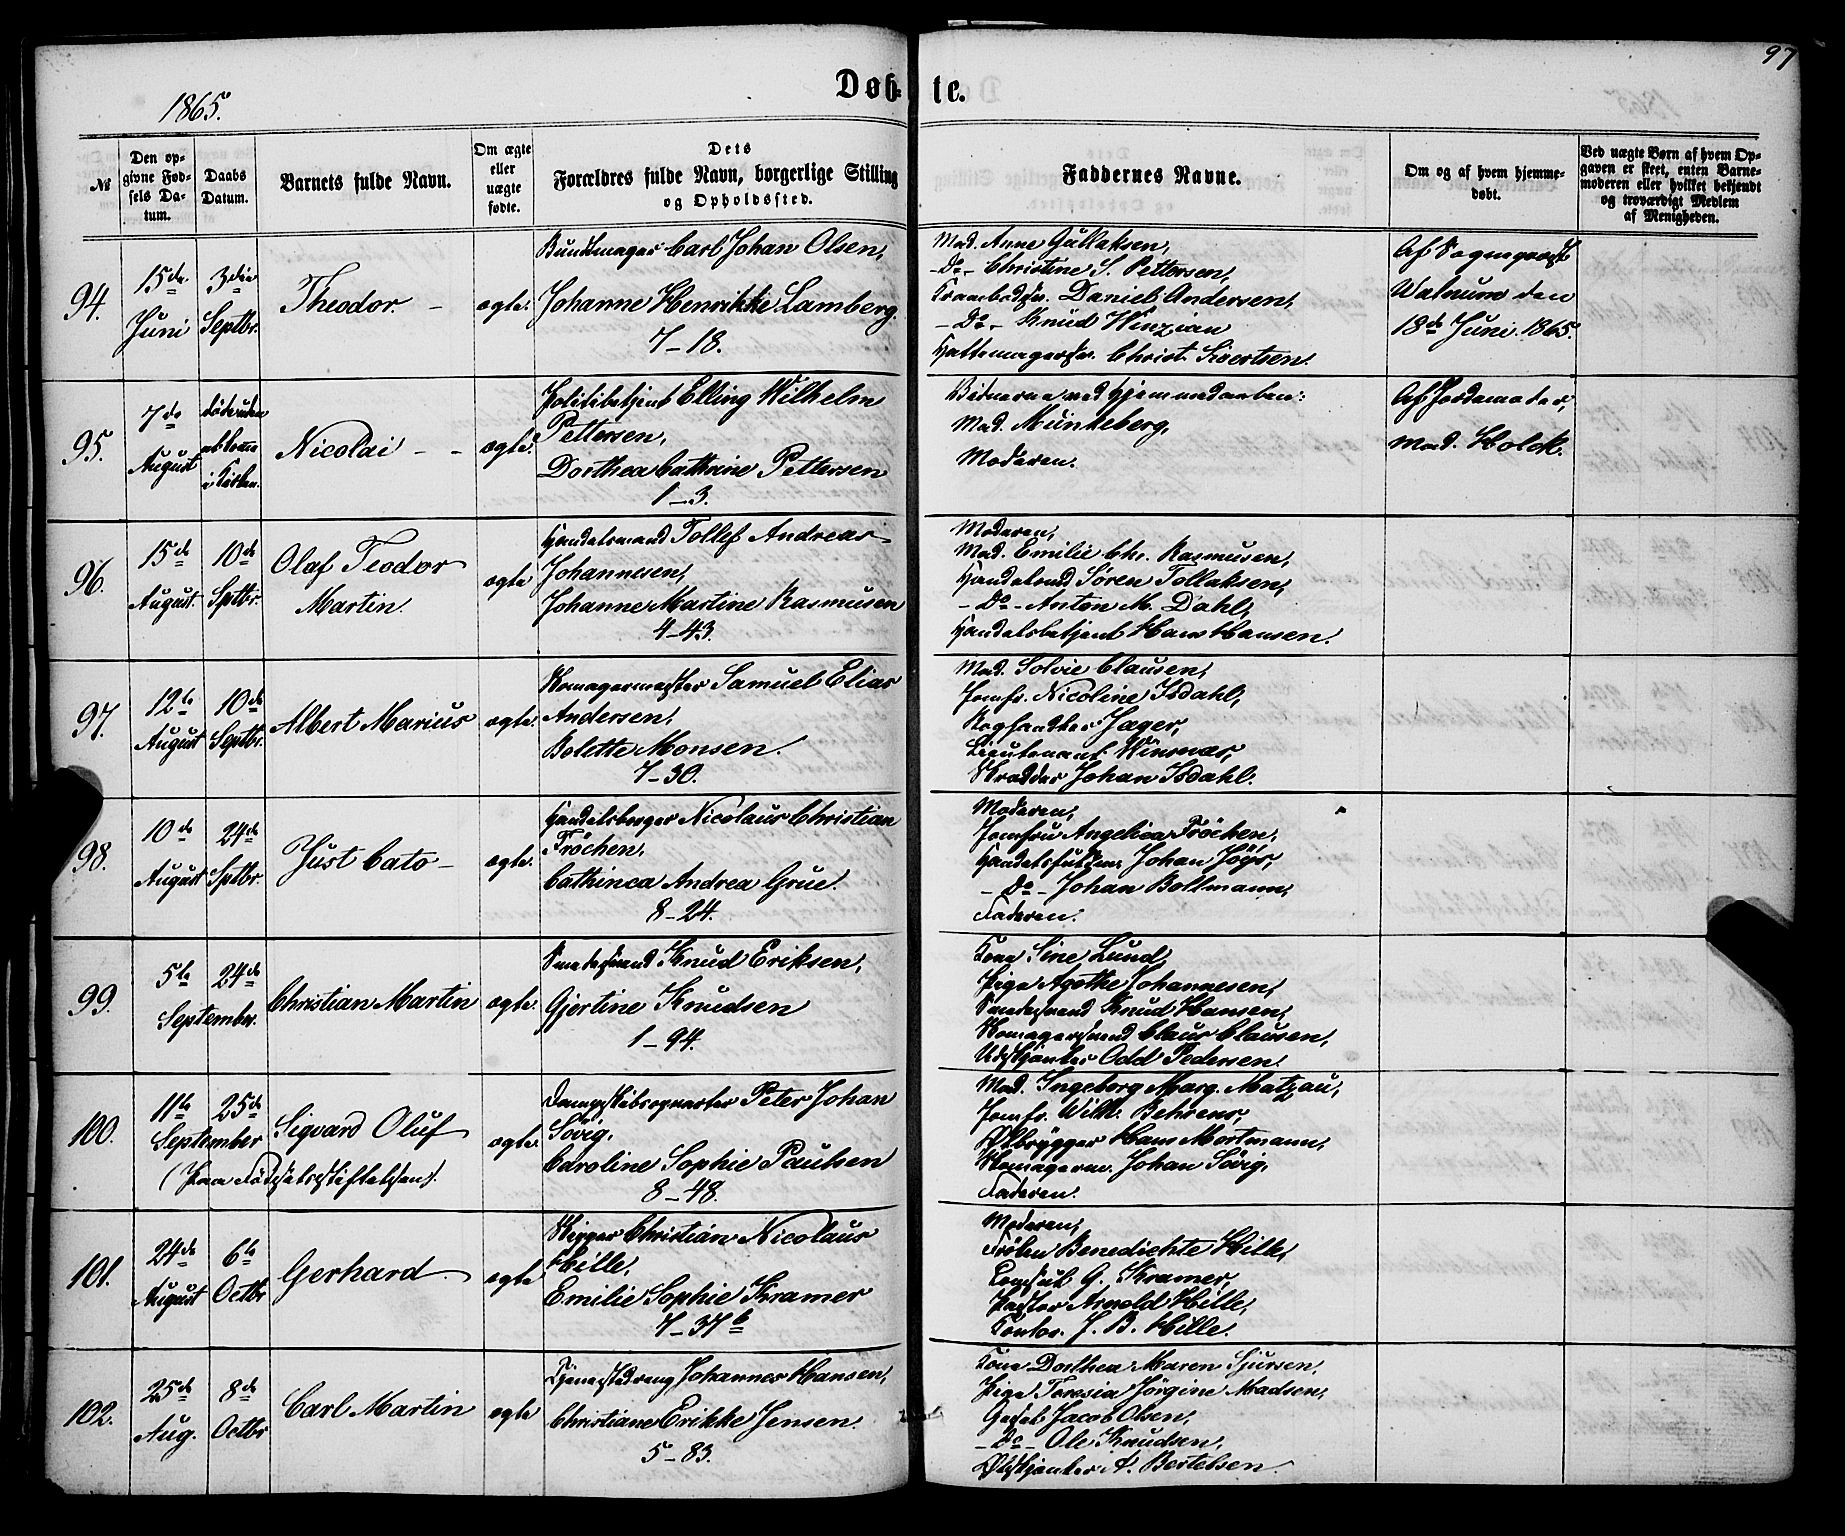 97
Døb- te.
1865.
№
Den opgivne Fødsels Datum.
Daabs Datum.
Barnets fulde Navn.
Om ægte eller uægte fødte.
Dets Forældres fulde Navn, borgerlige Stilling og Opholdssted.
Faddernes Navne.
Om og af hvem hjemmedøbt.
Ved uægte Børn af hvem Opgaven er skeet, enten Barnemoderen eller hvilket bekjendt og troværdigt Medlem af Menigheden.
94.
15de Juni
3die Septbr.
Theodor. -
ægte.
Bundtmager Carl Johan Olsen,
Johanne Henrikke Lamberg.
7-18.
Mad. Anne Gullaksen,
- Do - Christine S. Pettersen,
Daniel Andersen,
- Do - Knud Winzian
Christ. Sivertsen.
Af Sogneprest
Walnum den
18de Juni 1865.
95.
7de August
død uden at komme i Kirken.
Nicolai - -
ægte.
Politibetjent Elling Wilhelm
Pettersen,
Dorthea Cathrine Pettersen
1-3.
Vidnerne ved Hjemmedaaben:
Mad. Münkeberg,
Moderen.
Af Jordemoder,
Mad. Holck.
96.
15de August.
10de Sptbr.
Olaf Teodor
Martin.
ægte
Handelsmand Tollef Andreas
Johannesen,
Johanne Martine Rasmusen
4-43.
Moderen,
Mad. Emilie Chr. Rasmusen,
Handelsmd Søren Tollaksen,
- Do - Anton M. Dahl,
Handelsbetjent Hans Hansen.
97.
12te August
10de Septbr.
Albert Marius
ægte.
Skomagermester Samuel Elias
Andersen,
Bolette Monsen.
7-30.
Mad. Solvie Clausen,
Jomfr. Nicoline Isdahl,
Boghandler Jæger,
Lieutenant Winsnæs,
Skrædder Johan Isdahl.
98.
10de August
24de Sptbr.
Just Cato -
ægte.
Handelsborger Nicolaus Christian
Frøchen,
Cathinca Andrea Grue.
8-24.
Moderen,
Jomfru Angelica Frøchen,
Johan
- Do - Johan Bollmann,
Faderen.
99.
5te
24de
September.
Christian Martin
ægte.
Knud Eriksen,
Gjertine Knudsen
1-94.
Kone Sine Lund,
Pige Agethe Johannesen,
Knud Hansen,
Skomagersvend Claus Clausen,
Odd Pedersen.
100.
11te
25de
September
(Paa Fødselsstiftelsen).
Sigvard Oluf
ægte.
Peter Johan
Søvig,
Caroline Sophie Paulsen
8-48.
Mad. Ingeborg Marg. Matzau,
Jomfr. Wilh. Behrens,
Ølbrygger Hans Mortmann,
Skomagerm. Johan Søvig,
Faderen.
101.
24de August
6te Octbr
Gerhard.
ægte
Skipper Christian Nicolaus
Hille,
Emilie Sophie Kramer
7-37b
Moderen,
Frøken Benedichte Hille,
Consul G. Kramer,
Pastor Arnold Hille,
Contor. J. B. Hille.
102.
25de Aug.
8de Octbr
Carl Martin
ægte
Tjenestedreng Johannes Hansen,
Christiane Erikke Jensen.
5-83.
Kone Dorthea Maren Sjursen,
Pige Teresia Jørgine Madsen,
Jacob Olsen,
- Do - Ole Knudsen,
A. Bertelsen.